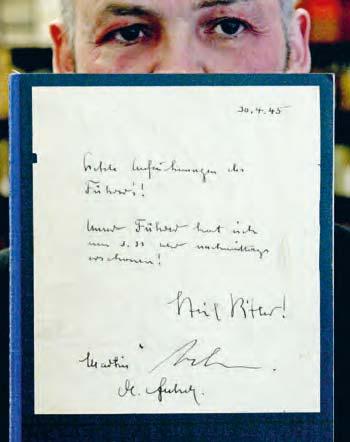 30.4.45
Letzte Aufzeichnungen des
Führers!
Unser Führer hat sich
um 3.30 Uhr nachmittags
erschossen!
Heil Hitler!
Martin